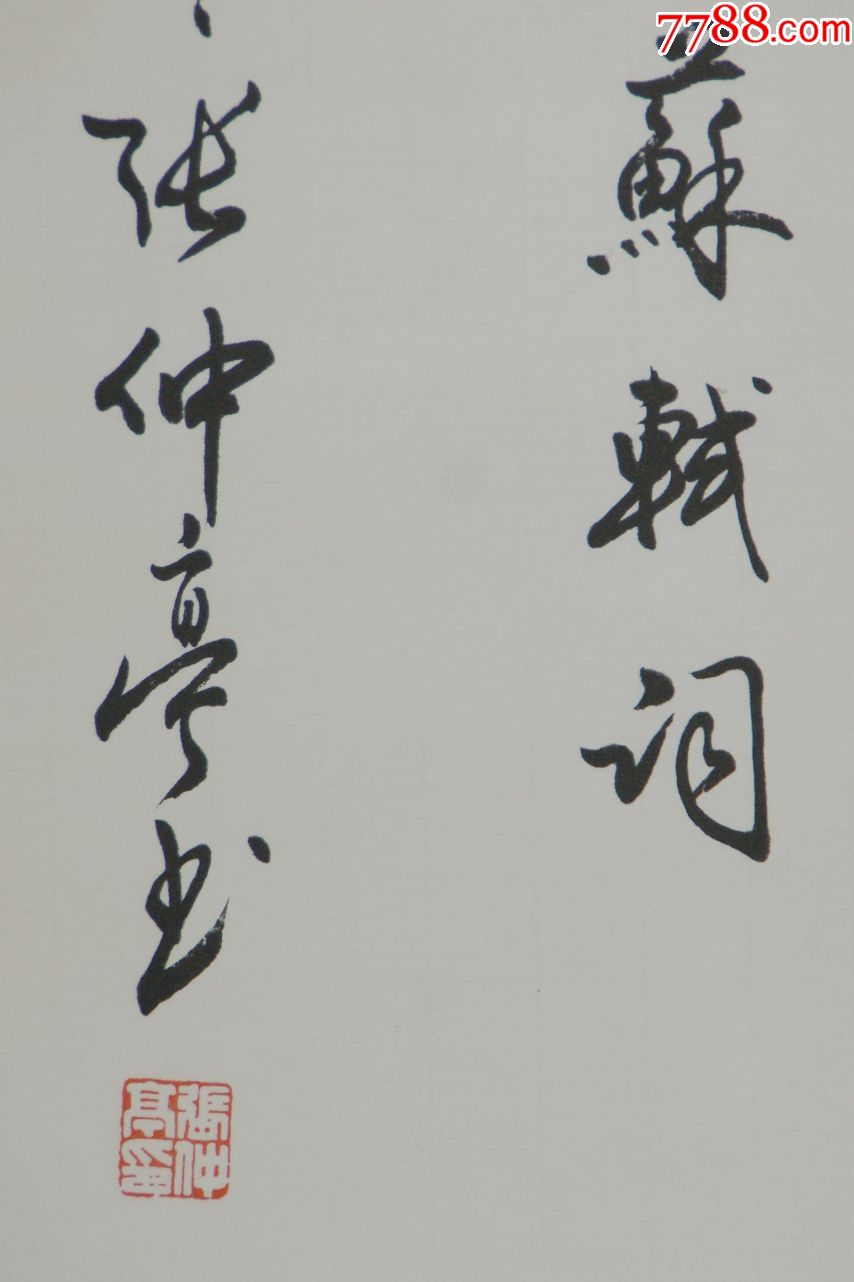 7788.com
蘇軾词
张仲亭书
張仲亭印